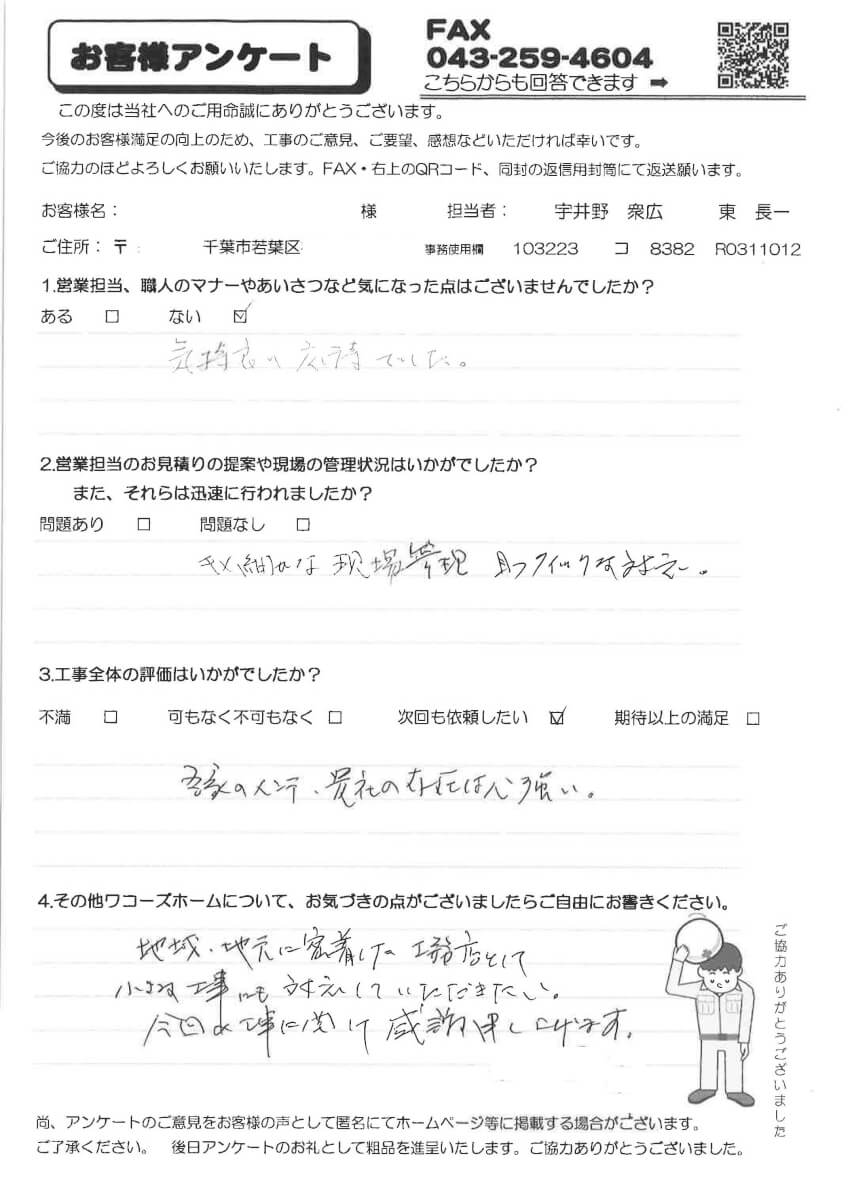 お客様アンケート
FAX
043-259-4604
こちらからも回答できます ➡
この度は当社へのご用命誠にありがとうございます。
今後のお客様満足の向上のため、工事のご意見、ご要望、感想などいただければ幸いです。
ご協力のほどよろしくお願いいたします。FAX・右上のQRコード、同封の返信用封筒にて返送願います。
お客様名： 様 担当者： 宇井野 衆広 東 長一
ご住所：〒 千葉市若葉区 事務使用欄 103223 コ 8382 R0311012
1.営業担当、職人のマナーやあいさつなど気になった点はございませんでしたか？
ある □ ない ☑
気持良い応待でした。
2.営業担当のお見積りの提案や現場の管理状況はいかがでしたか？
また、それらは迅速に行われましたか？
問題あり □ 問題なし □
キメ細かな現場管理 且つクイックな対応。
3.工事全体の評価はいかがでしたか？
不満 □ 可もなく不可もなく □ 次回も依頼したい ☑ 期待以上の満足 □
吾家のメンテ、貴社の存在は心強い。
4.その他ワコーズホームについて、お気づきの点がございましたらご自由にお書きください。
地域、地元に密着した工務店として
小さな工事にも対応していただきたい。
今回の工事に関し感謝申し上げます。
ご協力ありがとうございました
尚、アンケートのご意見をお客様の声として匿名にてホームページ等に掲載する場合がございます。
ご了承ください。 後日アンケートのお礼として粗品を進呈いたします。ご協力ありがとうございました。